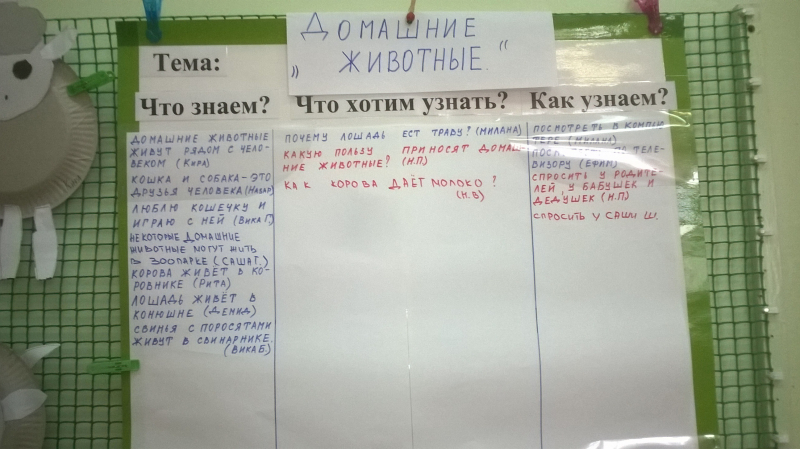 „Домашние
животные."
Тема:
Что знаем?
Что хотим узнать?
Как узнаем?
Домашние животные
живут рядом с чело-
веком (Кира)
Кошка и собака-это
друзья человека (Назар)
Люблю кошечку и
играю с ней (Вика Г.)
Некоторые домашние
животные могут жить
в зоопарке (Саша Г.)
Корова живёт в ко-
ровнике (Рита)
Лошадь живёт в
конюшне (Демид)
Свинья с поросятами
живут в свинарнике.
(Вика Б.)
Почему лошадь ест траву? (Милана)
Какую пользу приносят домаш-
ние животные? (Н.П)
Как корова даёт молоко?
(Н.В)
Посмотреть в компью
тере (Милана)
теле-
визору (Ефим)
Спросить у родите-
лей, у бабушек и
дедушек (Н.П)
Спросить у Саши Ш.